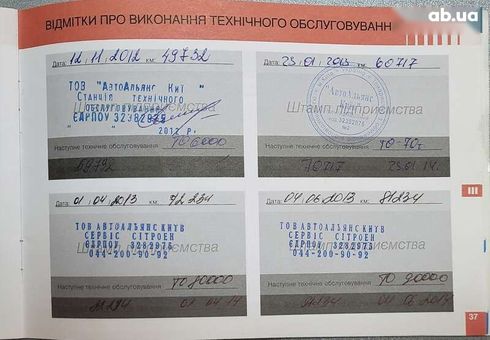 ab.ua
ВІДМІТКИ ПРО ВИКОНАННЯ ТЕХНІЧНОГО ОБСЛУГОВУВАНН
Дата: 12.11.2012 км: 49732
ТОВ "АвтоАльянс Киї "
Станція технічного
обслуговування
ЄДРПОУ 32382975
2012 р.
Штамп підприємства
Наступне технічне обслуговування
Дата: 23.01.2013 км: 60717
АвтоАльянс
Штамп Підприємства
Наступне технічне обслуговування ТО-70т.
70717 23.01.14.
Дата: 01.04.2013 км: 72234
ТОВ АВТОАЛЬЯНС КИЇВ
СЕРВІС СІТРОЕН
ЄДРПОУ 3232975
044-200-90-92
Наступне технічне обслуговування ТО 80000
01 04 14
Дата: 04.06.2013 км: 81234
ТОВ АВТОАЛЬЯНС КИЇВ
СЕРВІС СІТРОЕН
ЄДРПОУ 3232975
044-200-90-92
Наступне технічне обслуговування ТО 90000
III
37